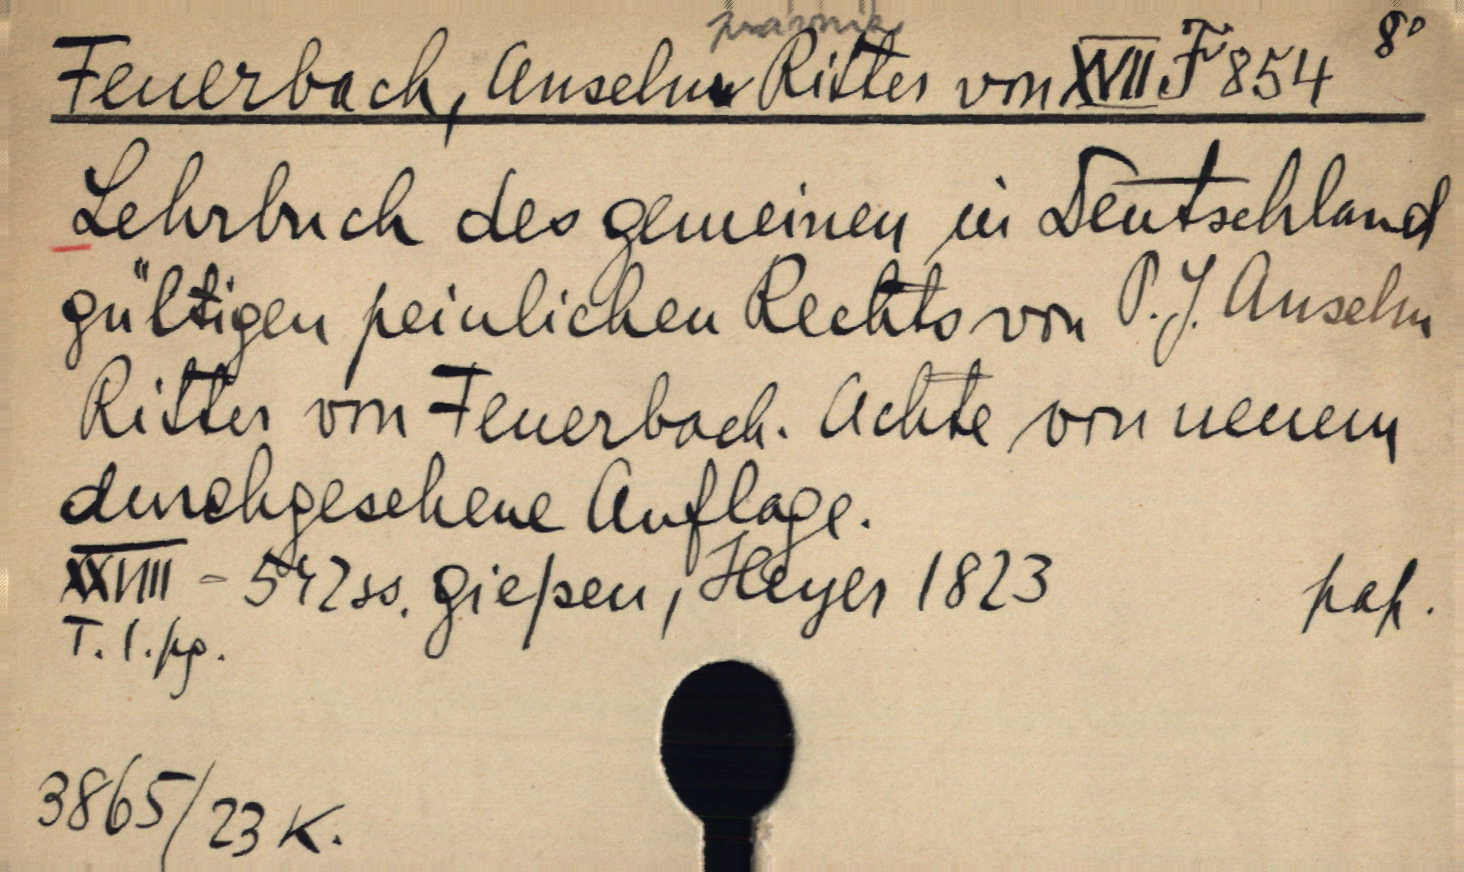 prawnik
Feuerbach, Anselm Ritter von XVII F 854 8°
Lehrbuch des gemeinen in Deutschland
gültigen peinlichen Rechts von P. J. Anselm
Ritter von Feuerbach. Achte von neuem
durchgesehene Auflage.
XXVIII - 542 ss. Gießen, Heyer 1823 pap.
T. 1. pg.
3865/23 K.